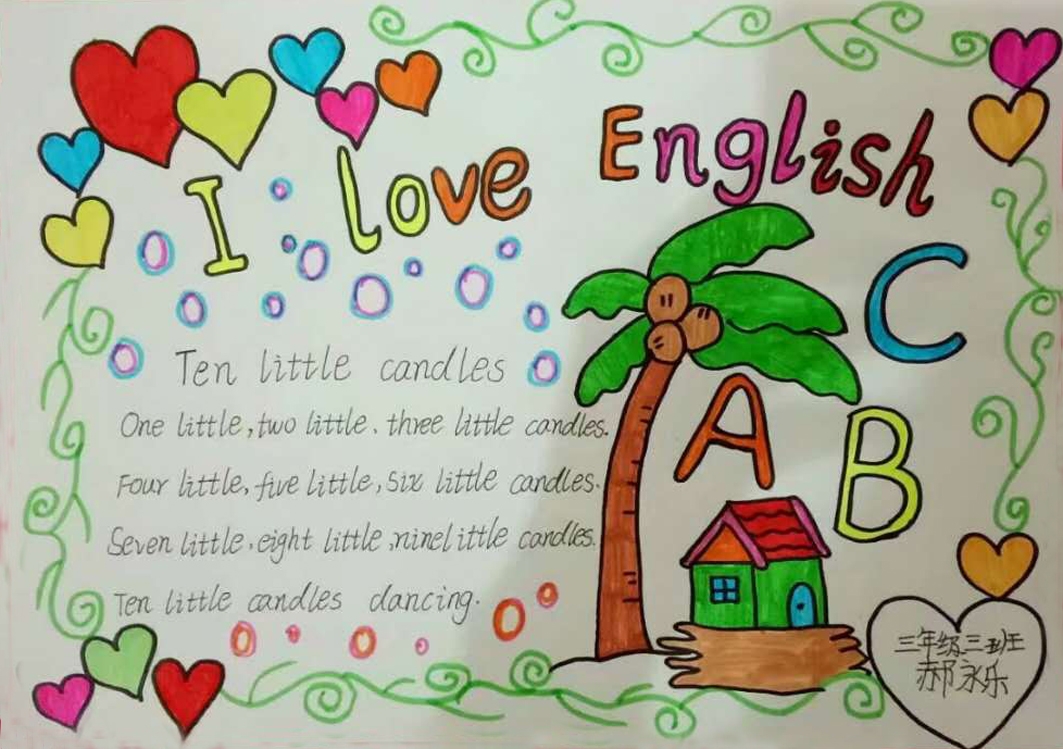 I love English
C
A B
Ten little candles
One little, two little, three little candles.
Four little, five little, six little candles.
Seven little, eight little, ninelittle candles.
Ten little candles dancing.
三年级三班
郝永乐